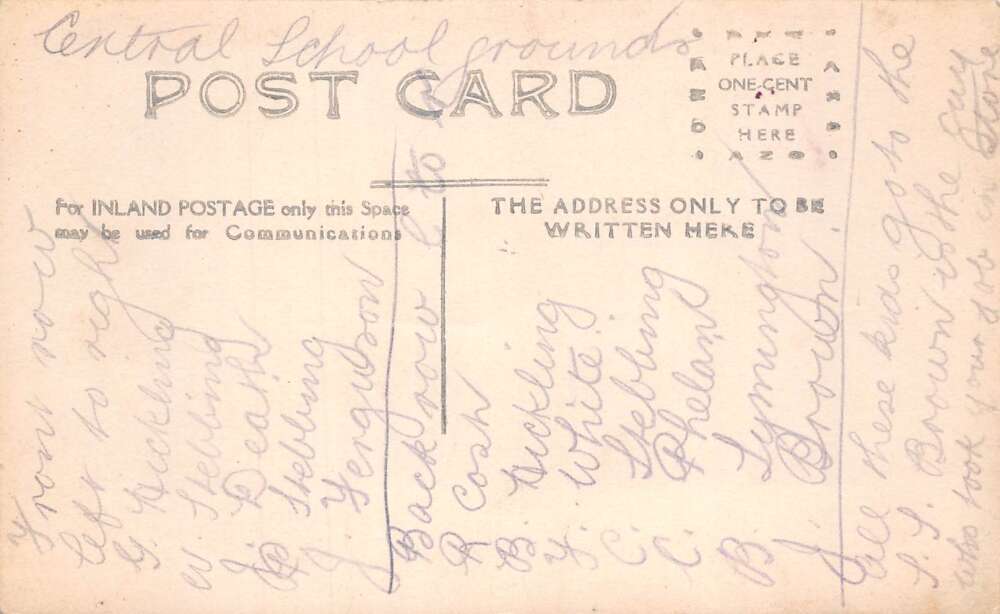 Central School grounds
POST CARD
PLACE
ONE CENT
STAMP
HERE
For INLAND POSTAGE only this Space
may be used for Communications
THE ADDRESS ONLY TO BE
WRITTEN HERE
Front row
left to right
G. Hickling
W. Stebbing
J. Death
B. Stebbing
J. Ferguson
Back row L to
R Cosh
B. Hickling
F. White
C. Stebbing
C. Phelan
B. Lymington
J. Brown
All these kids go to the
S. S. Brown is the Guy
who took your job in
Store